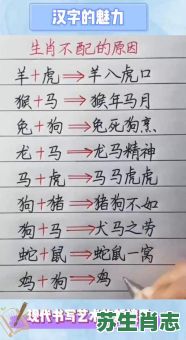 汉字的魅力
生肖不配的原因
羊+虎⇒羊入虎口
猴+马⇒猴年马月
兔+狗⇒兔死狗烹
龙+马⇒龙马精神
马+虎⇒马马虎虎
狗+猪⇒猪狗不如
狗+马⇒犬马之劳
蛇+鼠⇒蛇鼠一窝
鸡+狗⇒鸡
现代书写艺术
苏生肖志